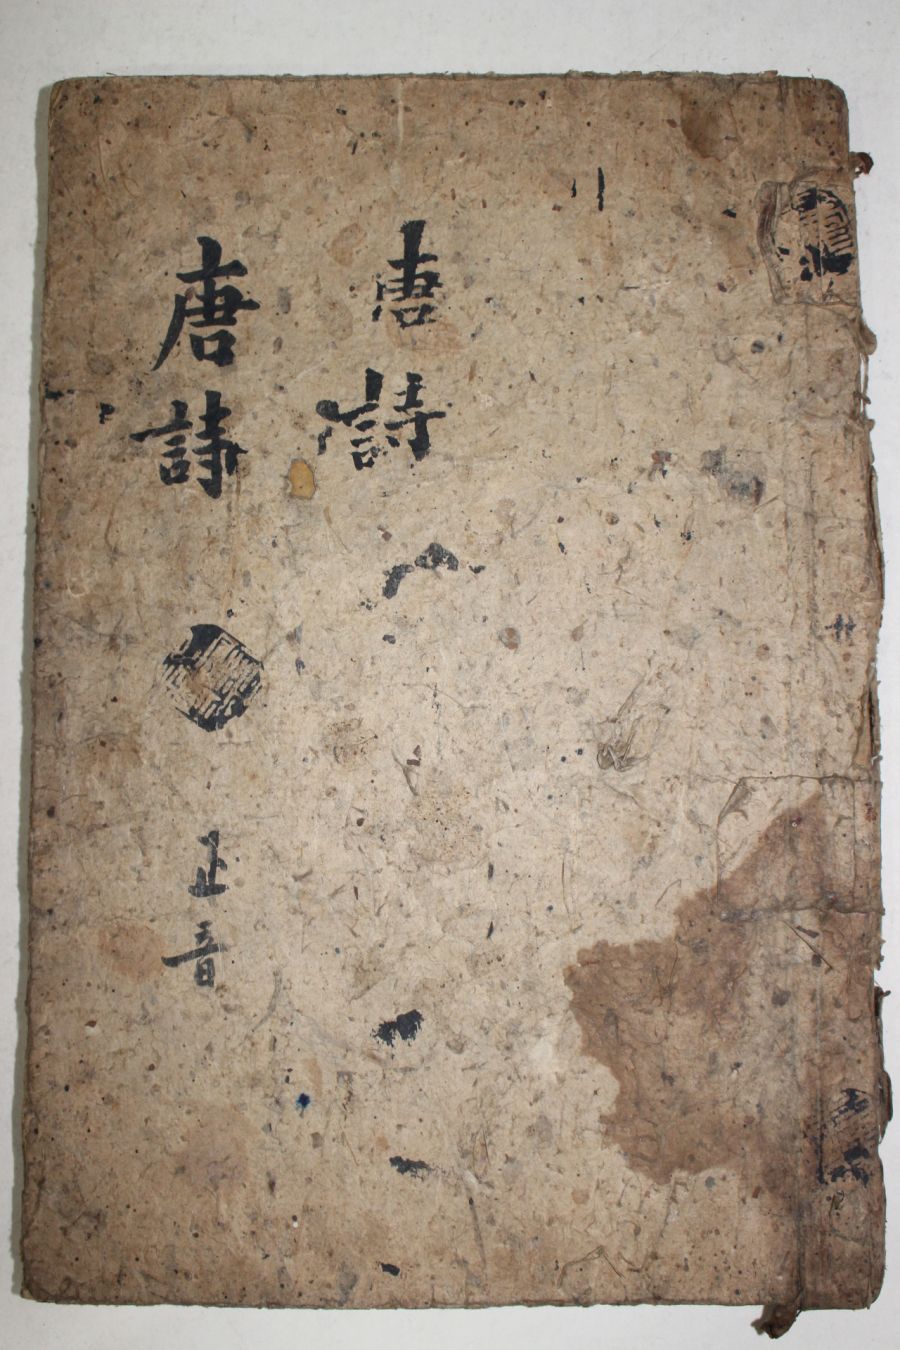 唐詩
唐詩 正音